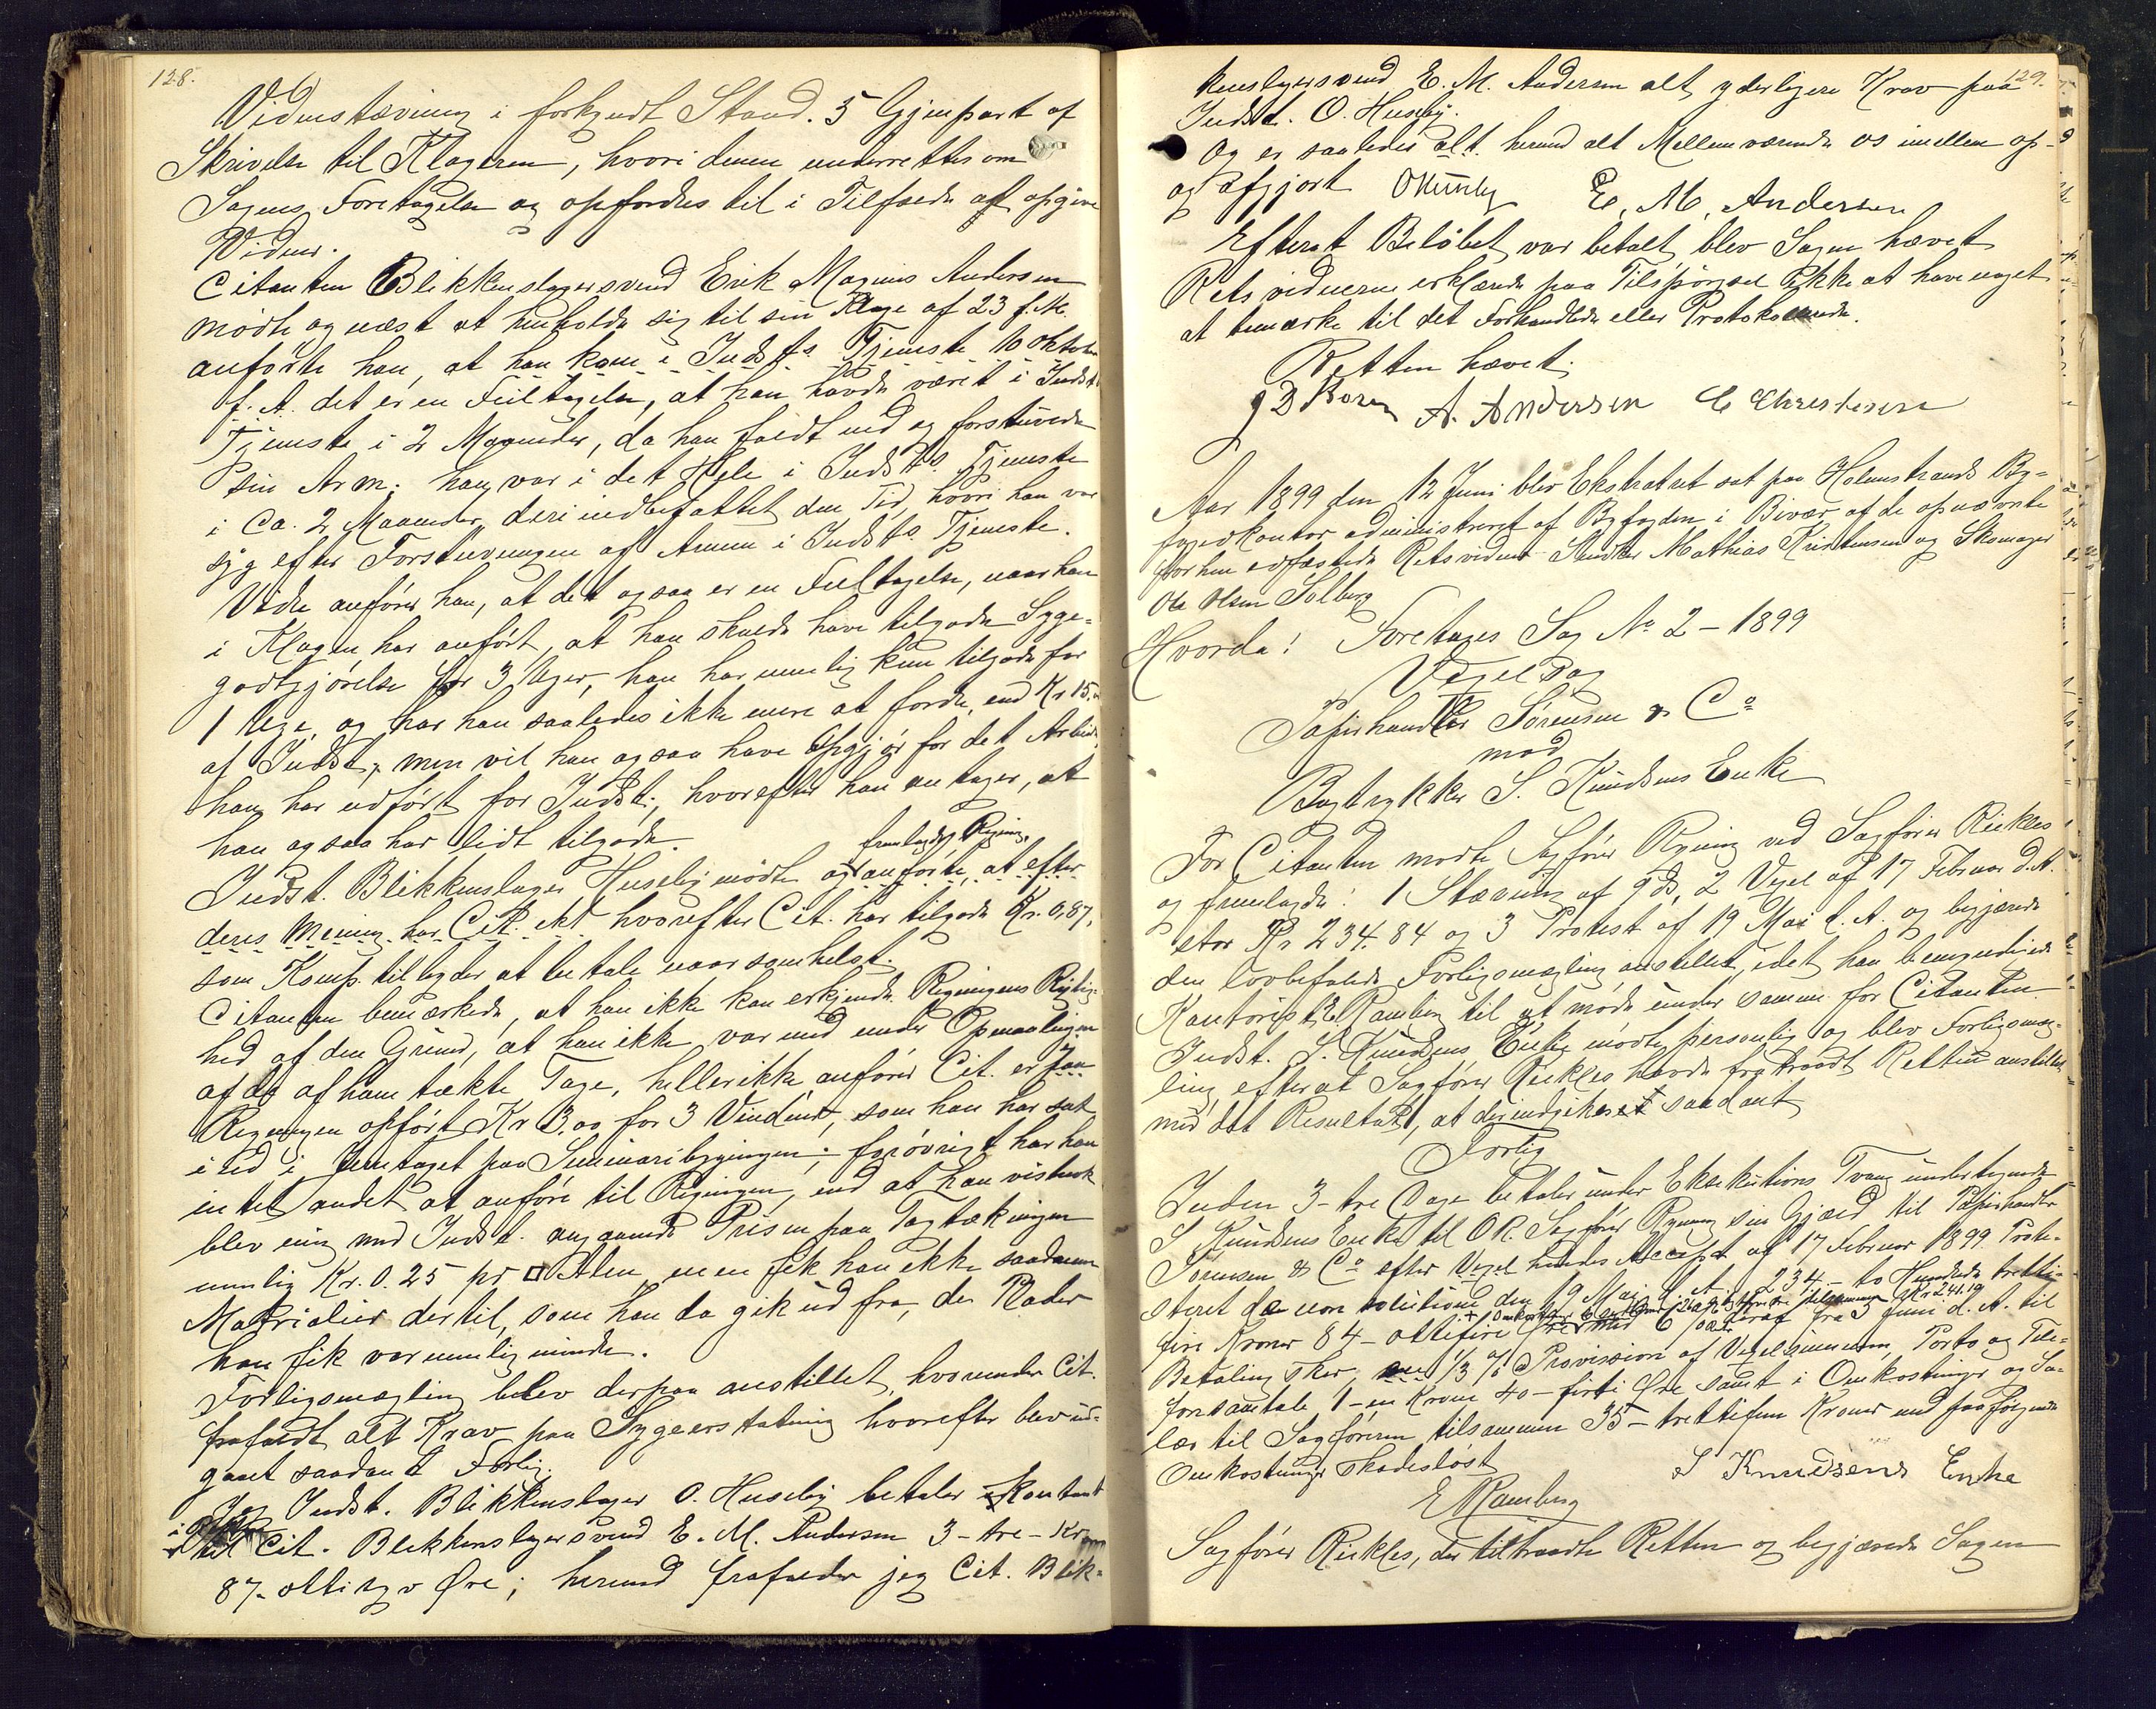 128.
Vidnestævning i forkyndt Stand. 5 Gjenpart af
Skrivelse til Klageren, hvori denne underrettes om
Sagens Foretagelse og opfordres til i Tilfælde af opgive
Vidner.
Citanten Blikkenslagersvend Erik Magnus Andersen
mødte og næst at henholde sig til sin Klage af 23 f. M.
anførte han, at han kom i Indst's Tjeneste 10 Oktober
f. A. det er en Feiltagelse, at han havde været i Indst.
Tjeneste i 2 Maaneder, da han faldt ned og forstuvede
sin Arm; han var i det Hele i Indst's Tjeneste
i Ca. 2 Maaneder, deri indbefattet den Tid, hvori han var
syg efter Forstuvningen af Armen i Indst's Tjeneste.
Videre anfører han, at det ogsaa er en Feiltagelse, naar han
i Klagen har anført, at han skulde have tilgode Syge-
godtgjørelse for 3 Uger, han har nemlig kun tilgode for
1 Uge, og har han saaledes ikke mere at fordre, end Kr 15.
af Indst., men vil han ogsaa have Opgjør for det Arbeide,
han har udført for Indst., hvorefter han antager, at
han ogsaa har lidt tilgode.
fremlagde Regning
Indst. Blikkenslager Huseby mødte og anførte, at efter
deres Mening har Cit. hvorefter Cit. har tilgode Kr. 0,87,
som Komp. tilbyder at betale naarsomhelst.
Citanten bemærkede, at han ikke kan erkjende Regningens Rigtig-
hed af den Grund, at han ikke var med under Opmaalingen
af de af ham tækte Tage, heller ikke anfører Cit. er paa
Regningen opført Kr 3,00 for 3 Vinduer, som han har sat
ind i Jerntaget paa Seminaribygningen; forøvrigt har han
intet andet at anføre til Regningen, end at han vistnok
blev enig med Indst. angaaende Prisen paa Tagtækningen
nemlig Kr. 0.25 pr □ Alen, men fik han ikke saadanne
Materialier dertil, som han da gik ud fra, de Plader
han fik var nemlig mindre.
Forligsmægling blev derpaa anstillet, hvorunder Cit.
frafaldt alt Krav paa Sygeerstatning hvorefter blev ind-
gaaet saadant Forlig.
Jeg Indst. Blikkenslager O. Huseby betaler kontant
til Cit. Blikkenslagersvend E. M. Andersen 3 - tre - Kroner
87 - otti syv Øre; hermed frafalder jeg Cit. Blik-
129.
kenslagersvend E. M. Andersen alt yderligere Krav paa
Indst. O. Huseby.
Og er saaledes alt hermed alt Mellemværende os imellem op-
og afgjort O Huseby E. M. Andersen
Efterat Beløbet var betalt blev Sagen hævet
Retsvidnerne erklærede paa Tilspørgsel ikke at have noget
at bemærke til det Forhandlede eller Protokollerede.
Retten hævet.
A. Andersen C Christensen
Aar 1899 den 12 Juni blev Ekstraret sat paa Holmestrands By-
fogedkontor administreret af Byfogden i Bivær af de opnævnte
forhen edfæstede Retsvidner Snedker Mathias Kristensen og Skomager
Ole Olsen Solberg
Hvorda: Foretages Sag No 2 - 1899
Vexelsag
Papirhandler Sørensen & Co
mod
Bogtrykker S. Knudsens Enke
For Citanten mødte Sagfører Ryning ved Sagfører Rickles
og fremlagde: 1 Stævning af 9 ds, 2 Vexel af 17 Februar d. A.
stor Kr 234.84 og 3 Protest af 19 Mai d. A. og begjærede
den lovbefalede Forligsmægling anstillet, idet han bemyndigede
Kontorist E. Ramberg til at møde under samme for Citanten.
Indst. S. Knudsens Enke mødte personlig og blev Forligsmæg-
ling, efterat Sagfører Rickles havde fratraadt Retten anstillet
med det Resultat, at der indgikes saadant
Forlig
Inden 3 - tre Dage betaler under Eksekutions Tvang undertegnede
S Knudsens Enke til O.R. Sagfører Ryning sin Gjæld til Papirhandler
Sørensen & Co efter Vexel hendes Accept af 17 Februar 1899 Prote-
steret de non solutione den 19 Mai d. A. 234 - to Hundrede tretti-
fire Kroner 84 - ottifire Øre med 6 pCt heraf fra 3 Juni d. A. til
Betaling sker, 1/3 % Provision af Vexelsummen, Porto og Tele-
fonsamtale 1 - en Krone 40 - førti Øre samt i Omkostninger og Sa-
lær til Sagføreren tilsammen 35 - trettifem Kroner med paafølgende
Omkostninger skadesløst
S Knudsens Enke
E Ramberg
Sagfører Rickles, der tiltraadte Retten og begjærede Sagen